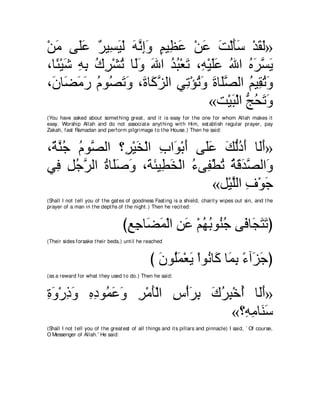 «لَقَدْ سَأَلْتَ عَنْ عَظِيمٍ وَإِنَّهُ لَيَسِيرٌ عَلَى مَنْ
يَسَّرَهُ اللهُ عَلَيْهِ، تَعْبُدُ اللهَ وَلَا تُشْرِكُ بِهِ شَيْئًا،
وَتُقِيمُ الصَّلَاةَ وَتُؤْتِي الزَّكَاةَ، وَتَصُومُ رَمَضَانَ،
وَتَحُجُّ الْبَيْت»
(You have asked about something great, and it is easy for the one for whom Allah makes it
easy. Worship Allah and do not associate anything with Him, establish regular prayer, pay
Zakah, fast Ramadan and perform pilgrimage to the House.) Then he said:
«أَلَا أَدُلُّكَ عَلَى أَبْوَابِ الْخَيْرِ؟ الصَّوْمُ جُنَّةٌ،
وَالصَّدَقَةُ تُطْفِىءُ الْخَطِيئَةَ، وَصَلَاةُ الرَّجُلِ فِي
جَوْفِ اللَّيْل»
(Shall I not tell you of the gates of goodness Fasting is a shield, charity wipes out sin, and the
prayer of a man in the depths of the night.) Then he recited:
(تَتَجَافَى جُنُوبُهُمْ عَنِ الْمَضَاجِعِ)
(Their sides forsake their beds,) until he reached
(جَزَآءً بِمَا كَانُواْ يَعْمَلُونَ )
(as a reward for what they used to do.) Then he said:
«أَلَا أُخْبِرُكَ بِرَأْسِ الْأَمْرِ وَعَمُودِهِ وَذِرْوَةِ
سَنَامِهِ؟»
(Shall I not tell you of the greatest of all things and its pillars and pinnacle) I said, `Of course,
O Messenger of Allah.' He said: